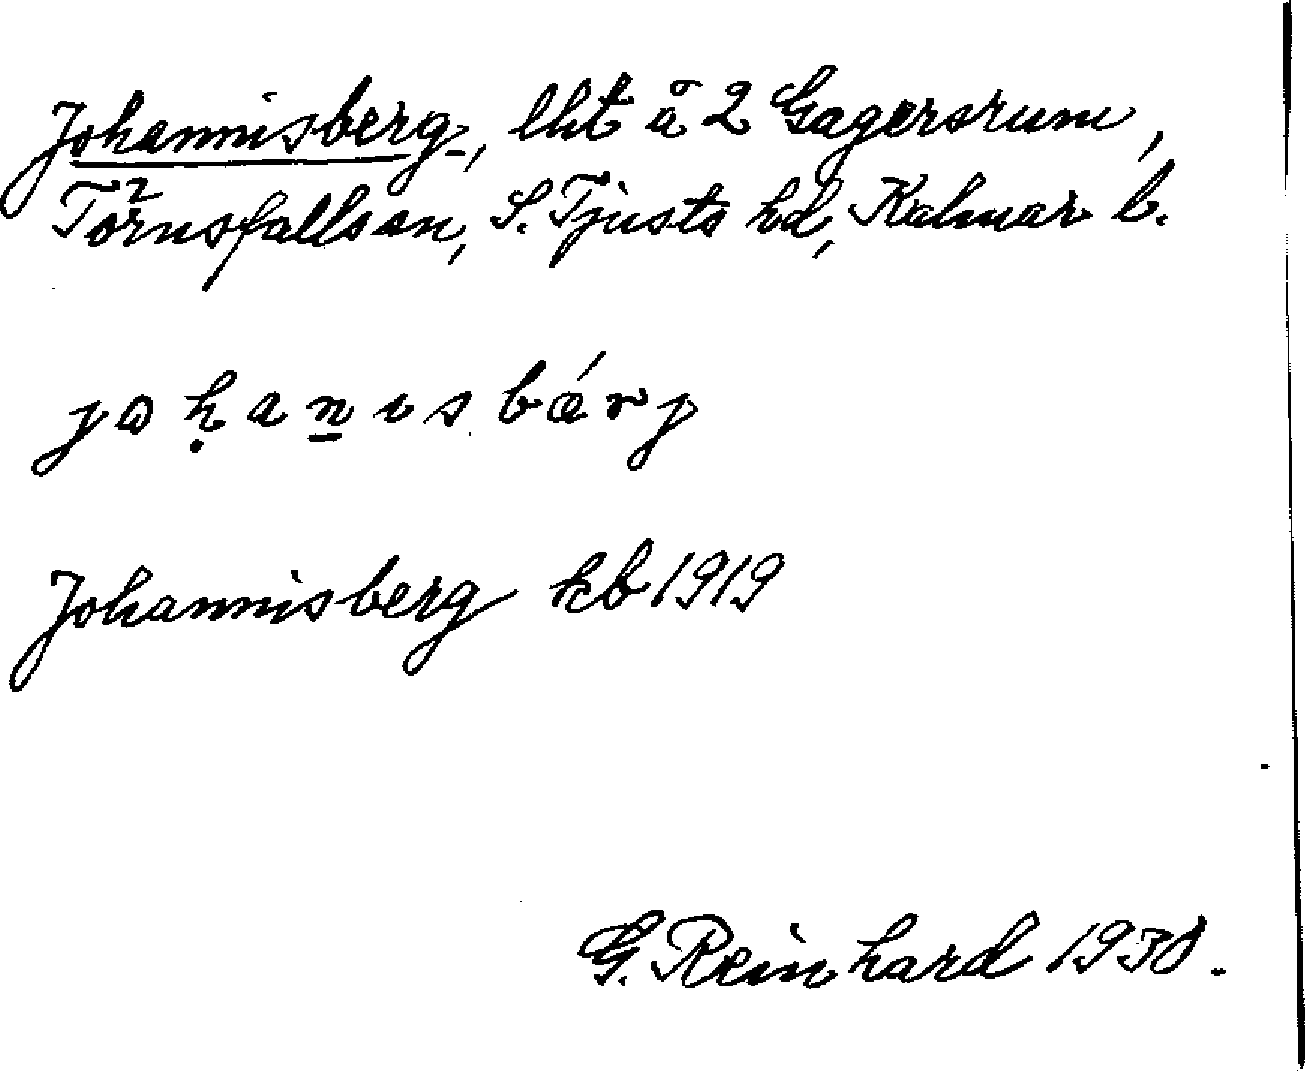 Johannisberg, lht å 2 Gagersrum,
Törnsfalls sn, S. Tjusts hd, Kalmar l.
johanısbǽrj
Johannisberg kb 1919
G. Reinhard 1930.